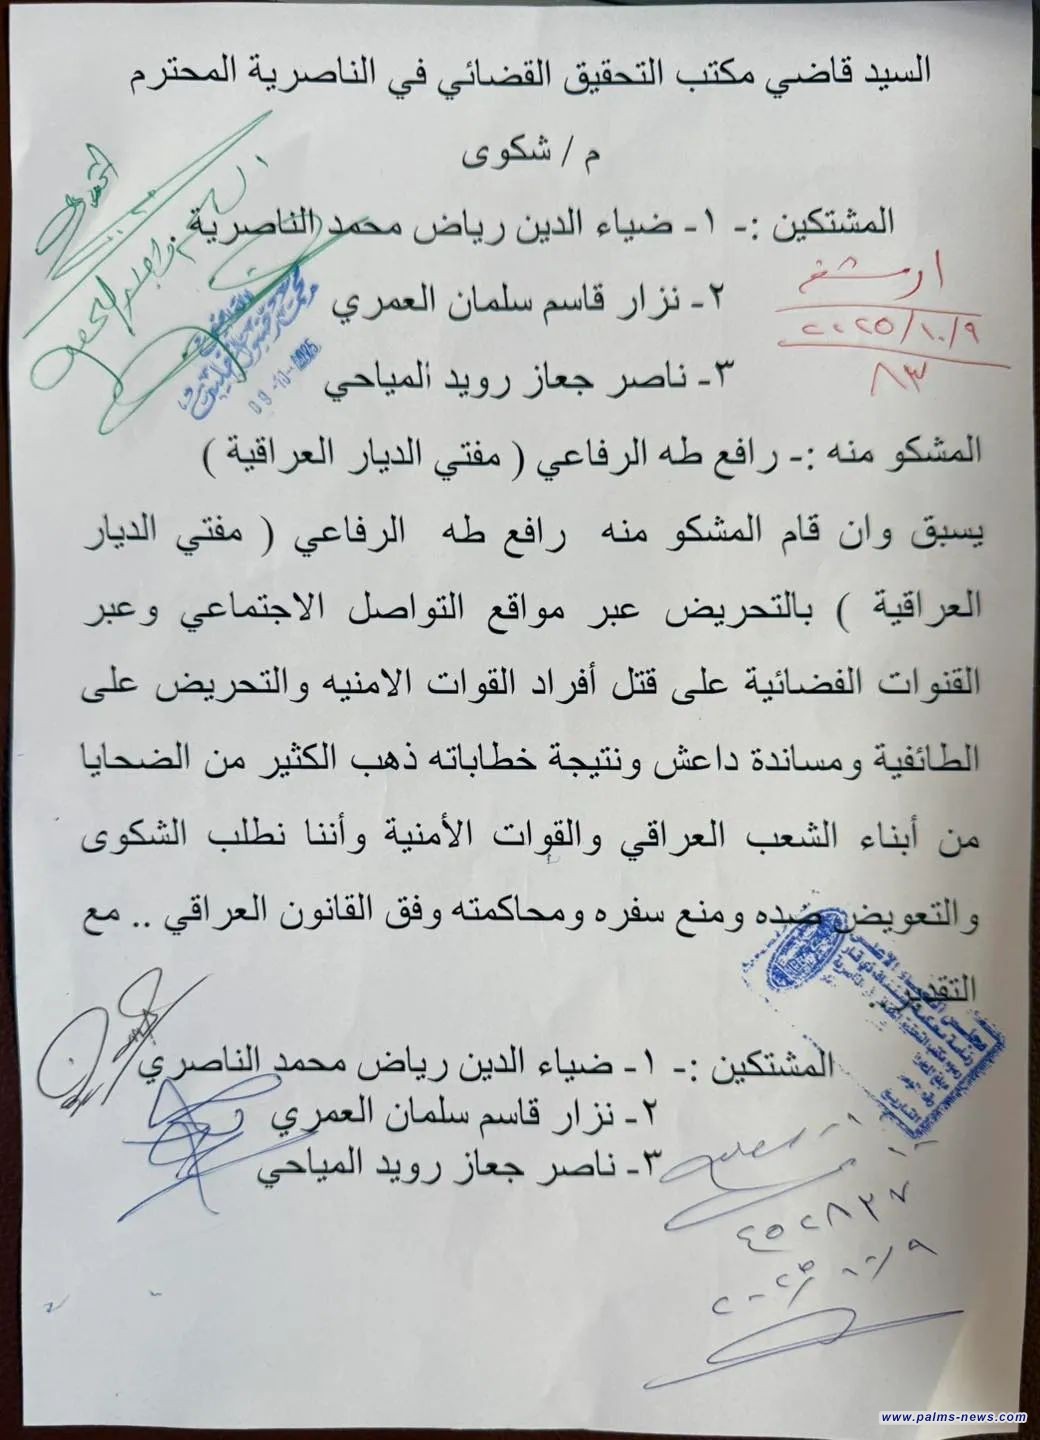 السيد قاضي مكتب التحقيق القضائي في الناصرية المحترم
م / شكوى
المشتكين :- ١- ضياء الدين رياض محمد الناصرية .
٢- نزار قاسم سلمان العمري
٣- ناصر جعاز رويد المياحي
٢٠٢٥/١٠/٩
٨٣
09-10-2025
المشكو منه :- رافع طه الرفاعي ( مفتي الديار العراقية )
يسبق وان قام المشكو منه رافع طه الرفاعي ( مفتي الديار
العراقية ) بالتحريض عبر مواقع التواصل الاجتماعي وعبر
القنوات الفضائية على قتل أفراد القوات الامنيه والتحريض على
الطائفية ومساندة داعش ونتيجة خطاباته ذهب الكثير من الضحايا
من أبناء الشعب العراقي والقوات الأمنية وأننا نطلب الشكوى
والتعويض ضده ومنع سفره ومحاكمته وفق القانون العراقي .. مع
التقدير .
المشتكين :- ١- ضياء الدين رياض محمد الناصري
٢- نزار قاسم سلمان العمري
٣- ناصر جعاز رويد المياحي
www.palms-news.com